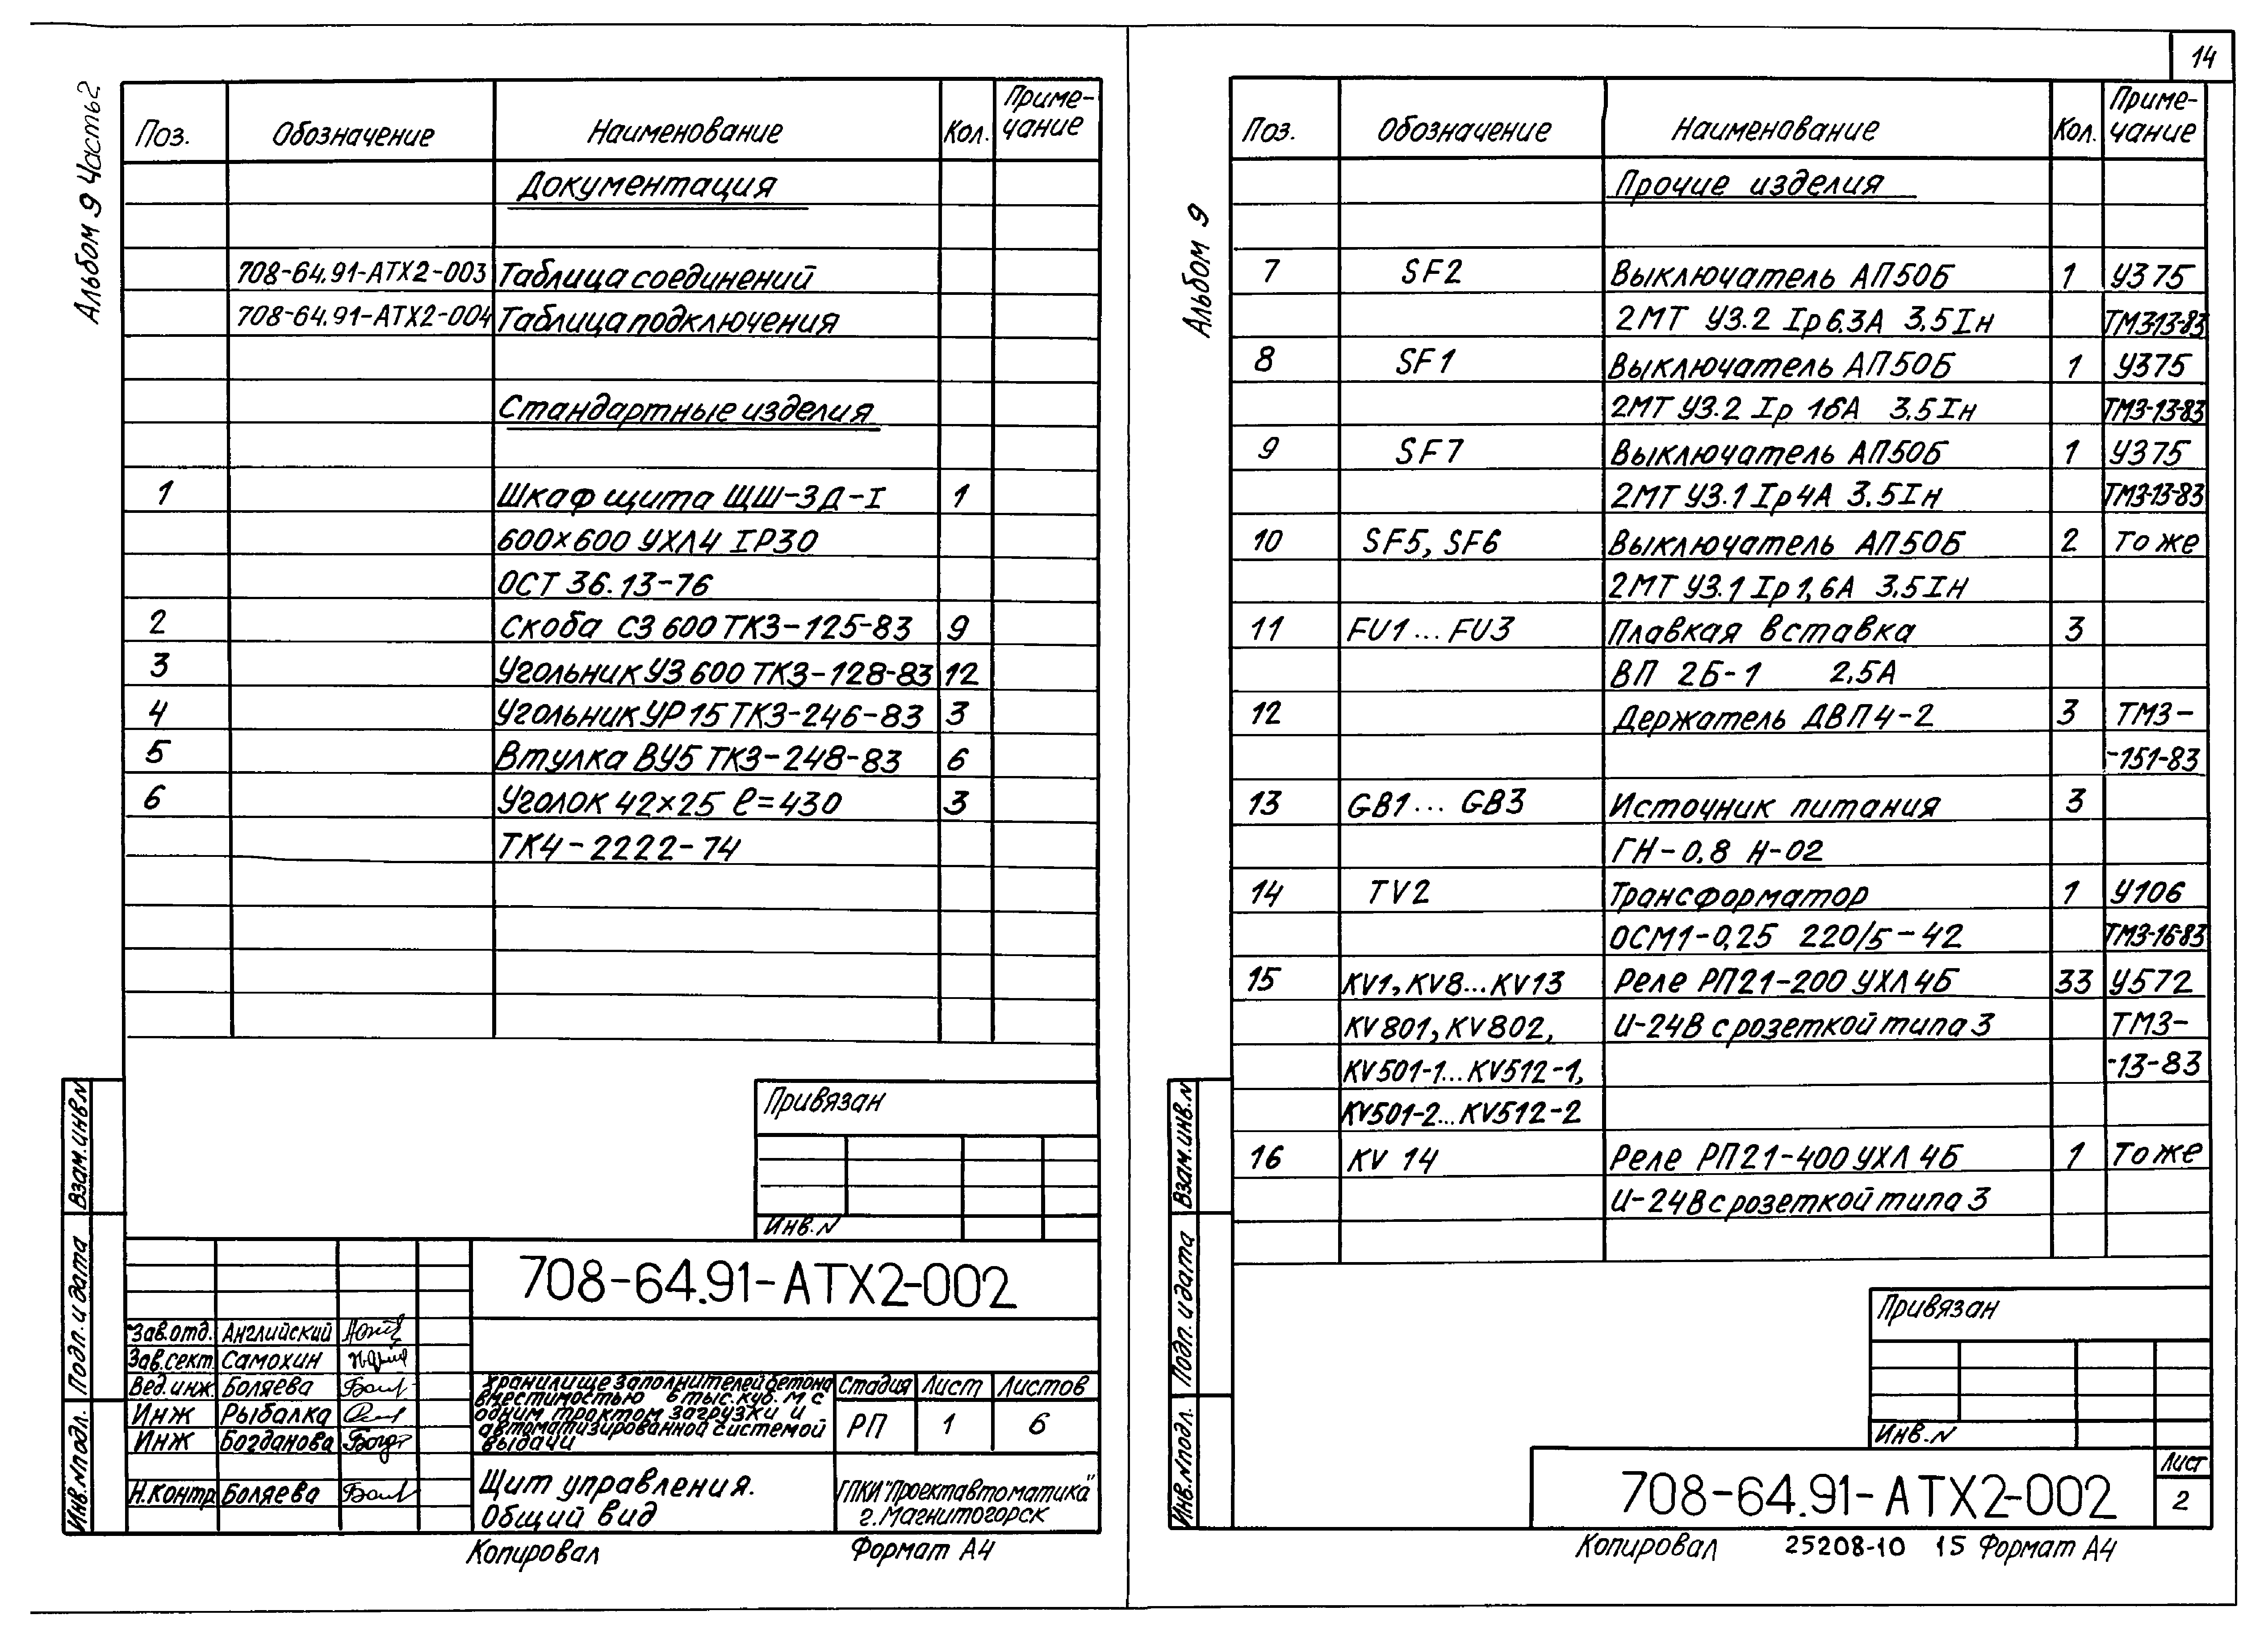 Альбом 9 Часть 2
Поз. Обозначение Наименование Кол. Приме-
чание
Документация
708-64.91-АТХ2-003 Таблица соединений
708-64.91-АТХ2-004 Таблица подключения
Стандартные изделия
1 Шкаф щита ЩШ-ЗД-I 1
600×600 УХЛ4 IP30
ОСТ 36.13-76
2 Скоба СЗ 600 ТКЗ-125-83 9
3 Угольник УЗ 600 ТКЗ-128-83 12
4 Угольник УР 15 ТКЗ-246-83 3
5 Втулка ВУ5 ТКЗ-248-83 6
6 Уголок 42×25 ℓ=430 3
ТК4-2222-74
Привязан
Инв.N
708-64.91-АТХ2-002
Зав.отд. Английский
Зав.сект. Самохин
Вед.инж. Боляева
Инж Рыбалка
Инж Богданова
Н.контр Боляева
Хранилище заполнителей бетона
вместимостью 6 тыс.куб.м с
одним трактом загрузки и
автоматизированной системой
выдачи
Стадия Лист Листов
РП 1 6
Щит управления.
Общий вид
ГПКИ "Проектавтоматика"
г.Магнитогорск
Взам.инв.N
Подп. и дата
Инв.N подл.
Копировал Формат А4
14
Альбом 9
Поз. Обозначение Наименование Кол. Приме-
чание
Прочие изделия
7 SF2 Выключатель АП50Б 1 УЗ75
2МТ УЗ.2 Iр 6,3А 3,5Iн ТМЗ-13-83
8 SF1 Выключатель АП50Б 1 УЗ75
2МТ УЗ.2 Iр 16А 3,5Iн ТМЗ-13-83
9 SF7 Выключатель АП50Б 1 УЗ75
2МТ УЗ.1 Iр 4А 3,5Iн ТМЗ-13-83
10 SF5, SF6 Выключатель АП50Б 2 То же
2МТ УЗ.1 Iр 1,6А 3,5Iн
11 FU1...FU3 Плавкая вставка 3
ВП 2Б-1 2,5А
12 Держатель ДВП4-2 3 ТМЗ-
-151-83
13 GB1...GB3 Источник питания 3
ГН-0,8 Н-02
14 TV2 Трансформатор 1 У106
ОСМ1-0,25 220/5-42 ТМЗ-16-83
15 KV1, KV8...KV13 Реле РП21-200 УХЛ 4Б 33 У572
KV801, KV802, U-24В с розеткой типа 3 ТМЗ-
KV501-1...KV512-1, -13-83
KV501-2...KV512-2
16 KV 14 Реле РП21-400 УХЛ 4Б 1 То же
U-24В с розеткой типа 3
Привязан
Инв.N
708-64.91-АТХ2-002
Лист
2
Взам.инв.N
Подп. и дата
Инв.N подл.
Копировал 25208-10 15 Формат А4